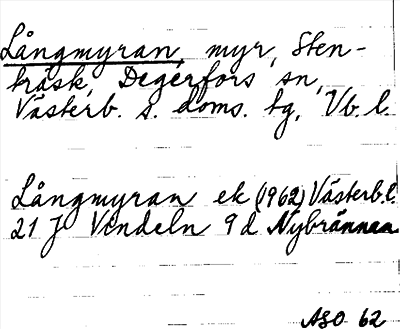 Långmyran, myr, Sten-
träsk, Degerfors sn,
Västerb. s. doms. tg, Vb. l.
Långmyran ek (1962) Västerb. l.
21 J Vindeln 9d Nybrännan
ASO 62